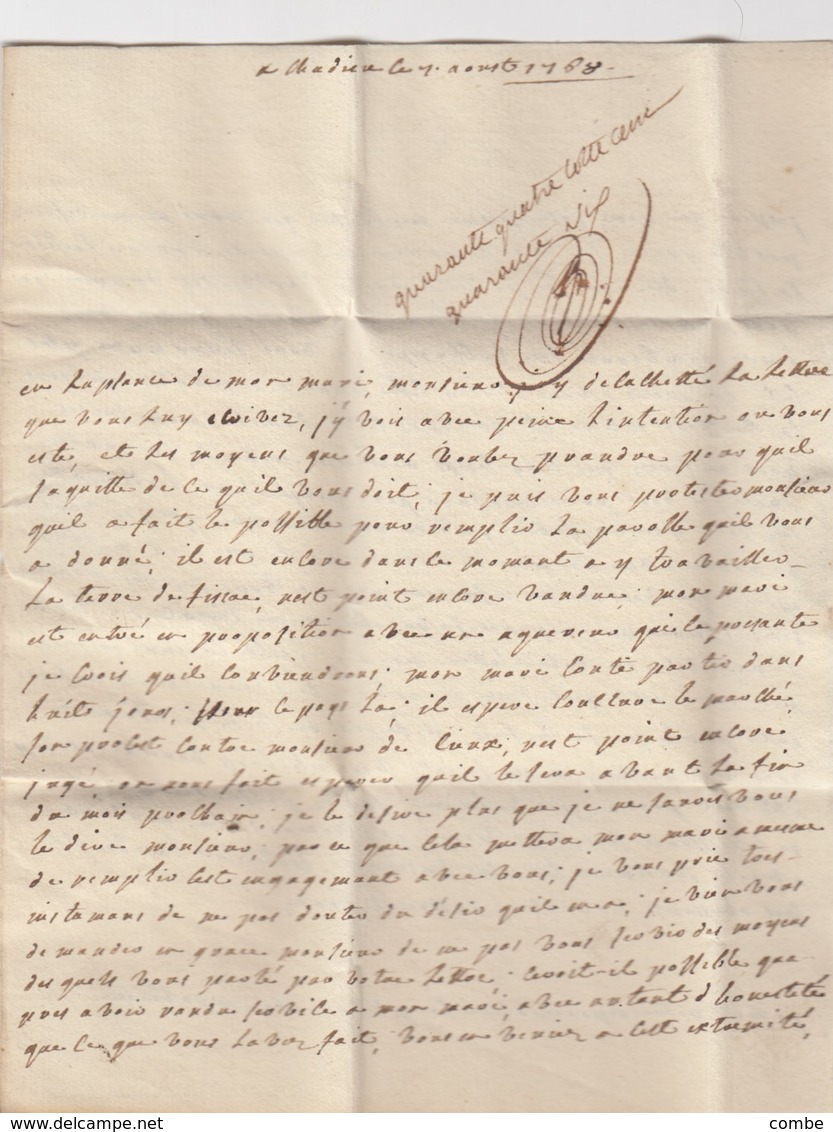 a Chadieu le 7. aoust 1768
quarante quatre Cotte cent
quarante six
en Laplance de mon mari, monsieur, j'y decachetté La Lettre
que vous Luy ecrivez, j'y vois avec peine Lintention ou vous
este, et Les moyens que vous voulez prandre pour quil
saquitte de ce quil vous doit, je puis vous protester monsieur
quil a fait le possible pour remplir La parolle quil vous
a donné; il est encore dans le momant a y travailler
La terre de fissac, nest point encore vandue; mon mari
est entré en proposition avec un aquereur qui le presante
je crois quil Conviendrons; mon mari Conte partir dans
huit jours, pour le pays La; il espere Conclure le marché
son procest Contre monsieur de Cinx, nest point encore
jugé on nous fait esperer quil le sera avant La fin
du mois prochain; je le desire plus que je ne sarois vous
le dire monsieur, parce que Cela mettera mon mari a meme
de remplir Cest engagemant avec vous; je vous prie tres
instamans de ne pas douter du désir quil en a; je vien vous
demander en grace monsieur de ne pas vous servir des moyens
des quels vous parlé par votre Lettre; seroit-il possible que
pres avoir randu service a mon mari, avec autant d'honesteté
que ce que vous Lavez fait, vous en veniez a cest extremité,
delcampe.net
combe